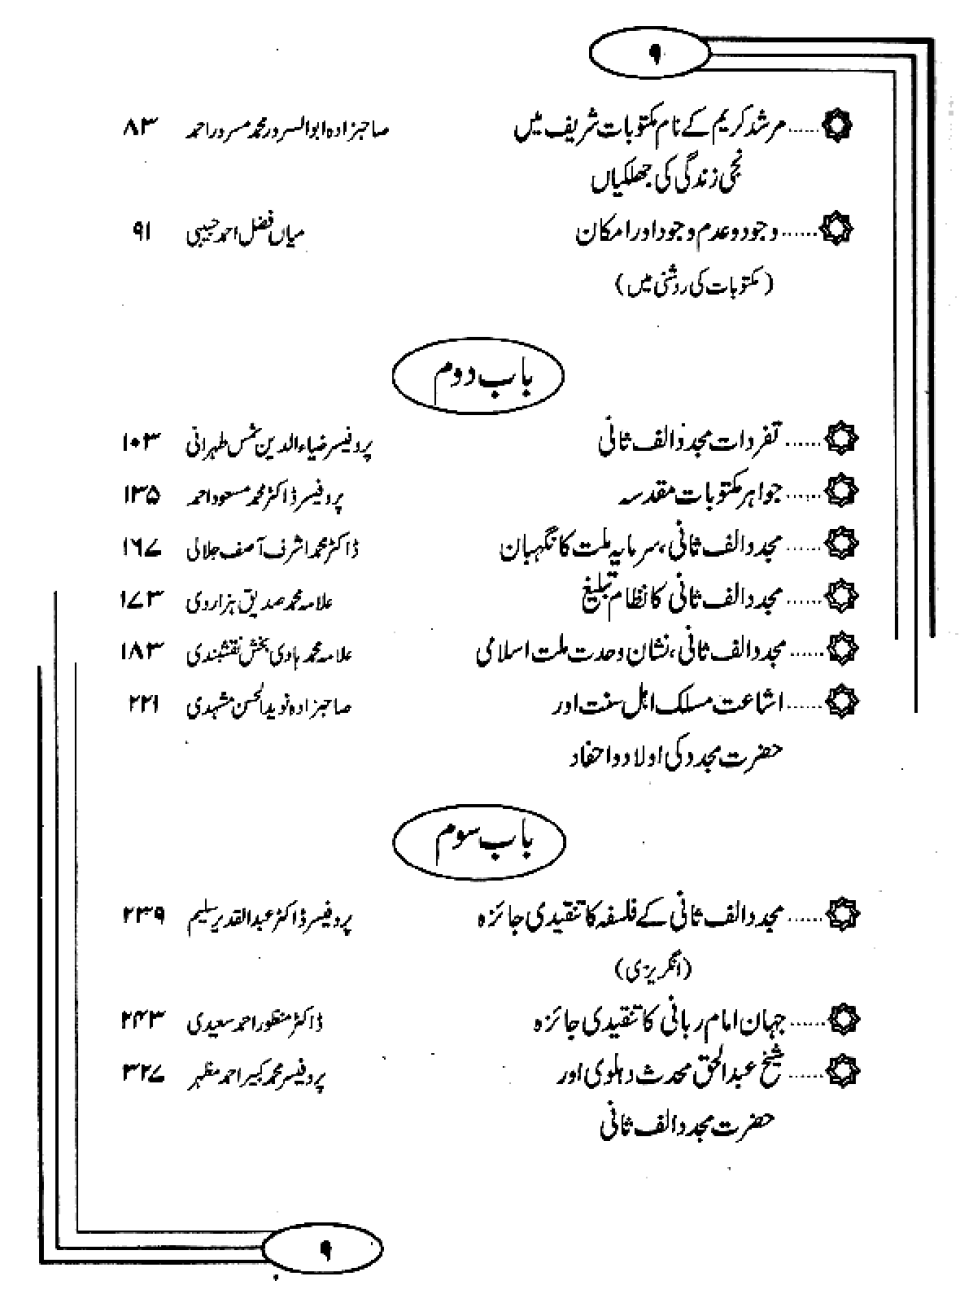 ۹
مرشد کریم کے نام مکتوبات شریف میں ...... صاحبزادہ ابوالسرور محمد مسرور احمد ۸۳
نجی زندگی کی جھلکیاں
وجود و عدم وجود اور امکان ...... میاں فضل احمد حبیبی ۹۱
(مکتوبات کی روشنی میں)
باب دوم
تفردات مجدد الف ثانی ...... پروفیسر ضیاء الدین شمس طہرانی ۱۰۳
جواہر مکتوبات مقدسہ ...... پروفیسر ڈاکٹر محمد مسعود احمد ۱۳۵
مجدد الف ثانی، سرمایہ ملت کا نگہبان ...... ڈاکٹر محمد اشرف آصف جلالی ۱۶۷
مجدد الف ثانی کا نظام تبلیغ ...... علامہ محمد صدیق ہزاروی ۱۷۳
مجدد الف ثانی، نشان وحدت ملت اسلامی ...... علامہ محمد ہادی بخش نقشبندی ۱۸۳
اشاعت مسلک اہل سنت اور ...... صاحبزادہ نوید الحسن مشہدی ۲۲۱
حضرت مجدد کی اولاد و احفاد
باب سوم
مجدد الف ثانی کے فلسفہ کا تنقیدی جائزہ ...... پروفیسر ڈاکٹر عبدالقدیر سلیم ۲۳۹
(انگریزی)
جہان امام ربانی کا تنقیدی جائزہ ...... ڈاکٹر منظور احمد سعیدی ۲۴۳
شیخ عبدالحق محدث دہلوی اور ...... پروفیسر محمد کبیر احمد مظہر ۳۲۷
حضرت مجدد الف ثانی
۹